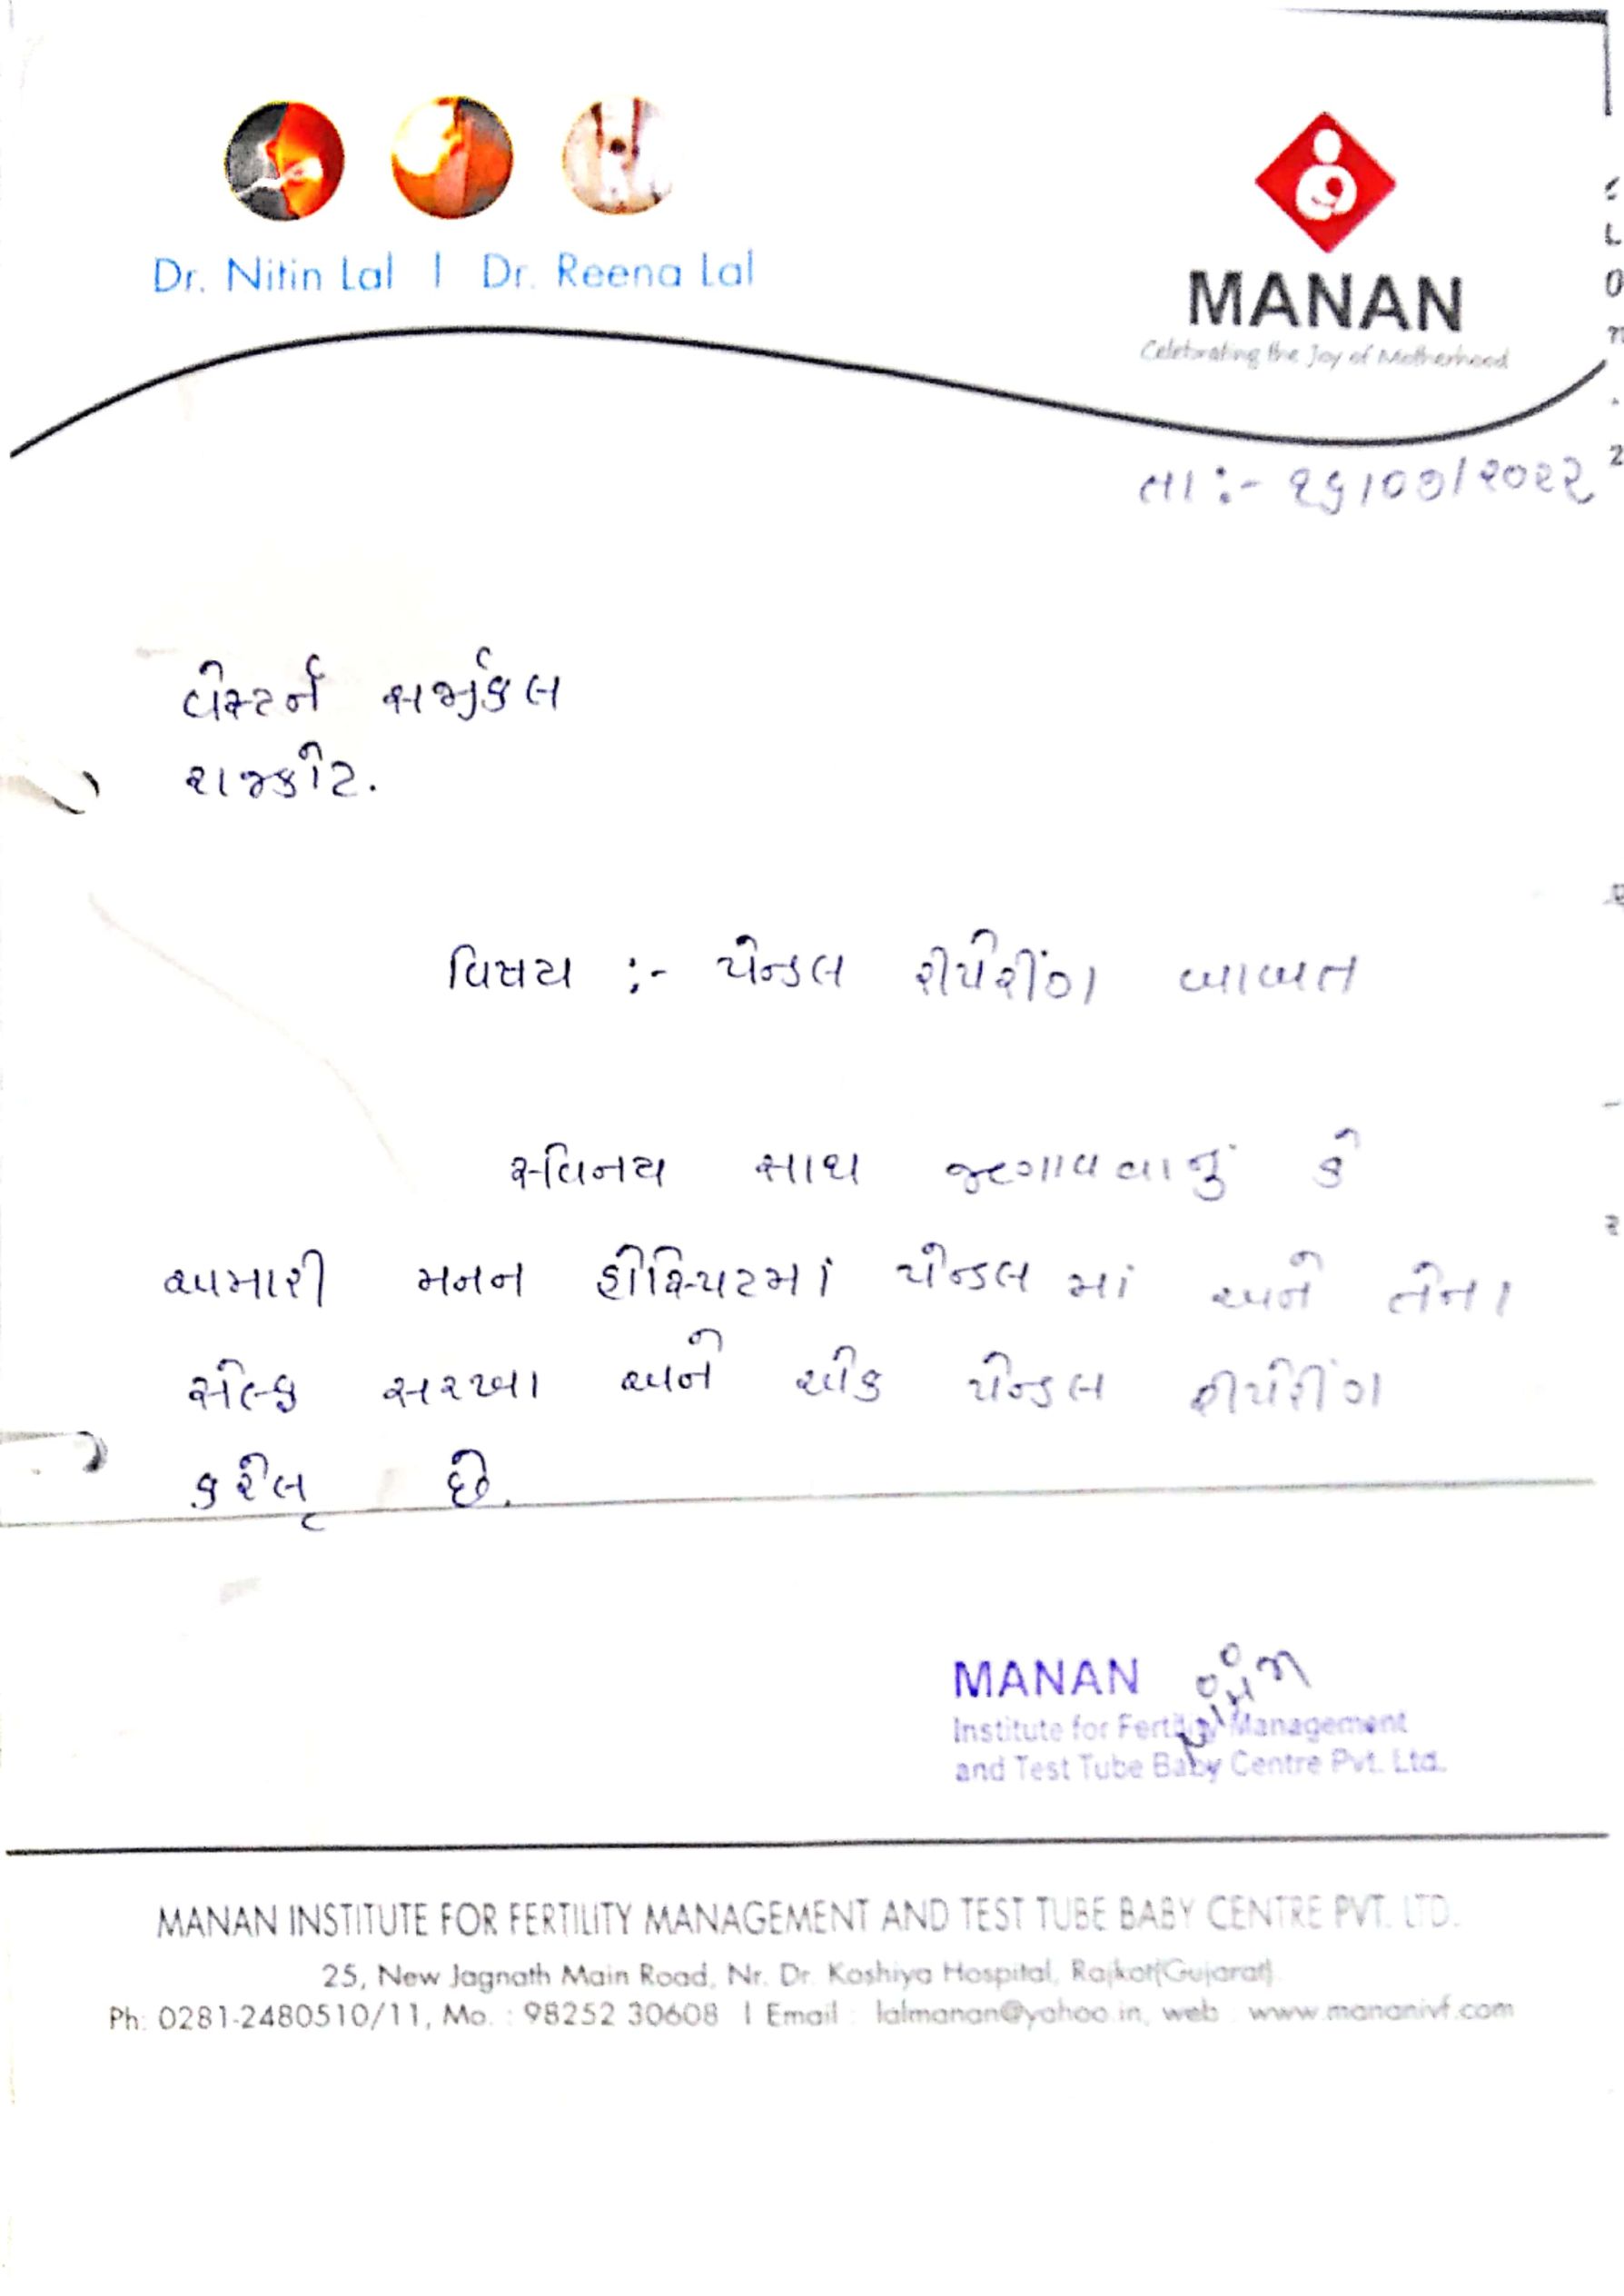 Dr. Nitin Lal | Dr. Reena Lal
MANAN
Celebrating the Joy of Motherhood
તા :- ૨૬/૦૭/૨૦૨૨
વેસ્ટર્ન સર્જીકલ
રાજકોટ.
વિષય :- પેન્ડલ રીપેરીંગ બાબત
સ્વિનય સાથ જણાવવાનું કે
અમારી મનન હોસ્પિટમાં પેન્ડલ માં અને તેના
સેલ્ફ સરખા અને એક પેન્ડલ રીપેરીંગ
કરેલ છે.
MANAN
Institute for Fertility Management
and Test Tube Baby Centre Pvt. Ltd.
MANAN INSTITUTE FOR FERTILITY MANAGEMENT AND TEST TUBE BABY CENTRE PVT. LTD.
25, New Jagnath Main Road, Nr. Dr. Koshiya Hospital, Rajkot(Gujarat).
Ph: 0281-2480510/11, Mo. : 98252 30608 | Email : lalmanan@yahoo.in, web : www.mananivf.com